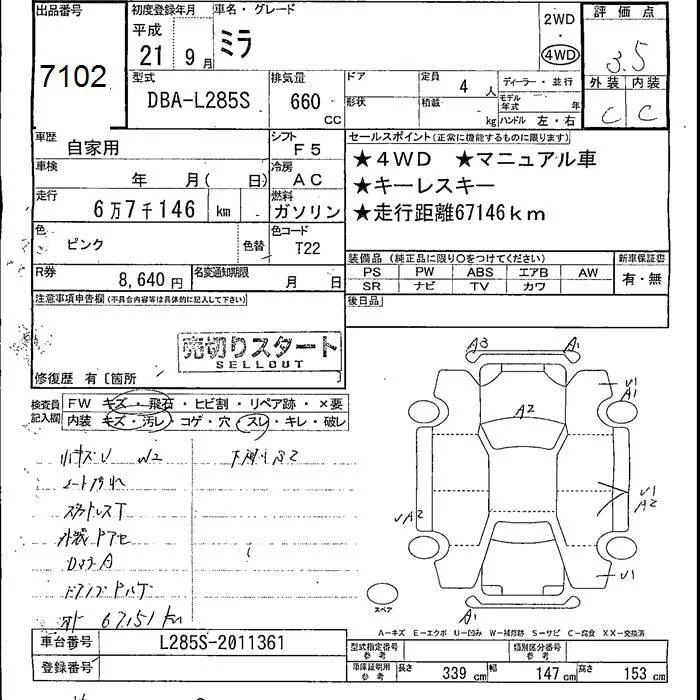 出品番号
7102
初度登録年月
平成
21 9 月
車名・グレード
ミラ
2WD
・
4WD
評価点
3.5
外装 内装
C C
型式
DBA-L285S
排気量
660
CC
ドア
形状
定員
4 人
積載
kg
ディーラー・並行
モデル年式 年
ハンドル 左・右
車歴
自家用
シフト
F5
車検
年 月( 日)
冷房
AC
走行
6万7千146 km
燃料
ガソリン
色
ピンク
色替
色コード
T22
R券
8,640 円
名変通知期限
月 日
セールスポイント(正常に機能するものに限ります)
★4WD ★マニュアル車
★キーレスキー
★走行距離67146km
装備品(純正品に限り○をつけてください)
PS PW ABS エアB AW
SR ナビ TV カワ
新車保証書
有・無
後日品
注意事項申告欄(不具合内容等は具体的に記入して下さい)
売切りスタート
SELLOUT
修復歴 有〔箇所
検査員記入欄
FW キズ・飛石・ヒビ割・リペア跡・×要
内装 キズ・汚レ・コゲ・穴・スレ・キレ・破レ
小キズU W2
シート汚れ
外装
67151 km
A3 A1
A2
U1
A1
U1
A2
UA2
U1
A1
スペア
A―キズ E―エクボ U―凹み W―補修跡 S―サビ C―腐食 XX―交換済
車台番号
L285S-2011361
登録番号
型式指定番号
参考
類別区分番号
参考
車庫証明用
参考
長さ 339 cm 幅 147 cm 高さ 153 cm